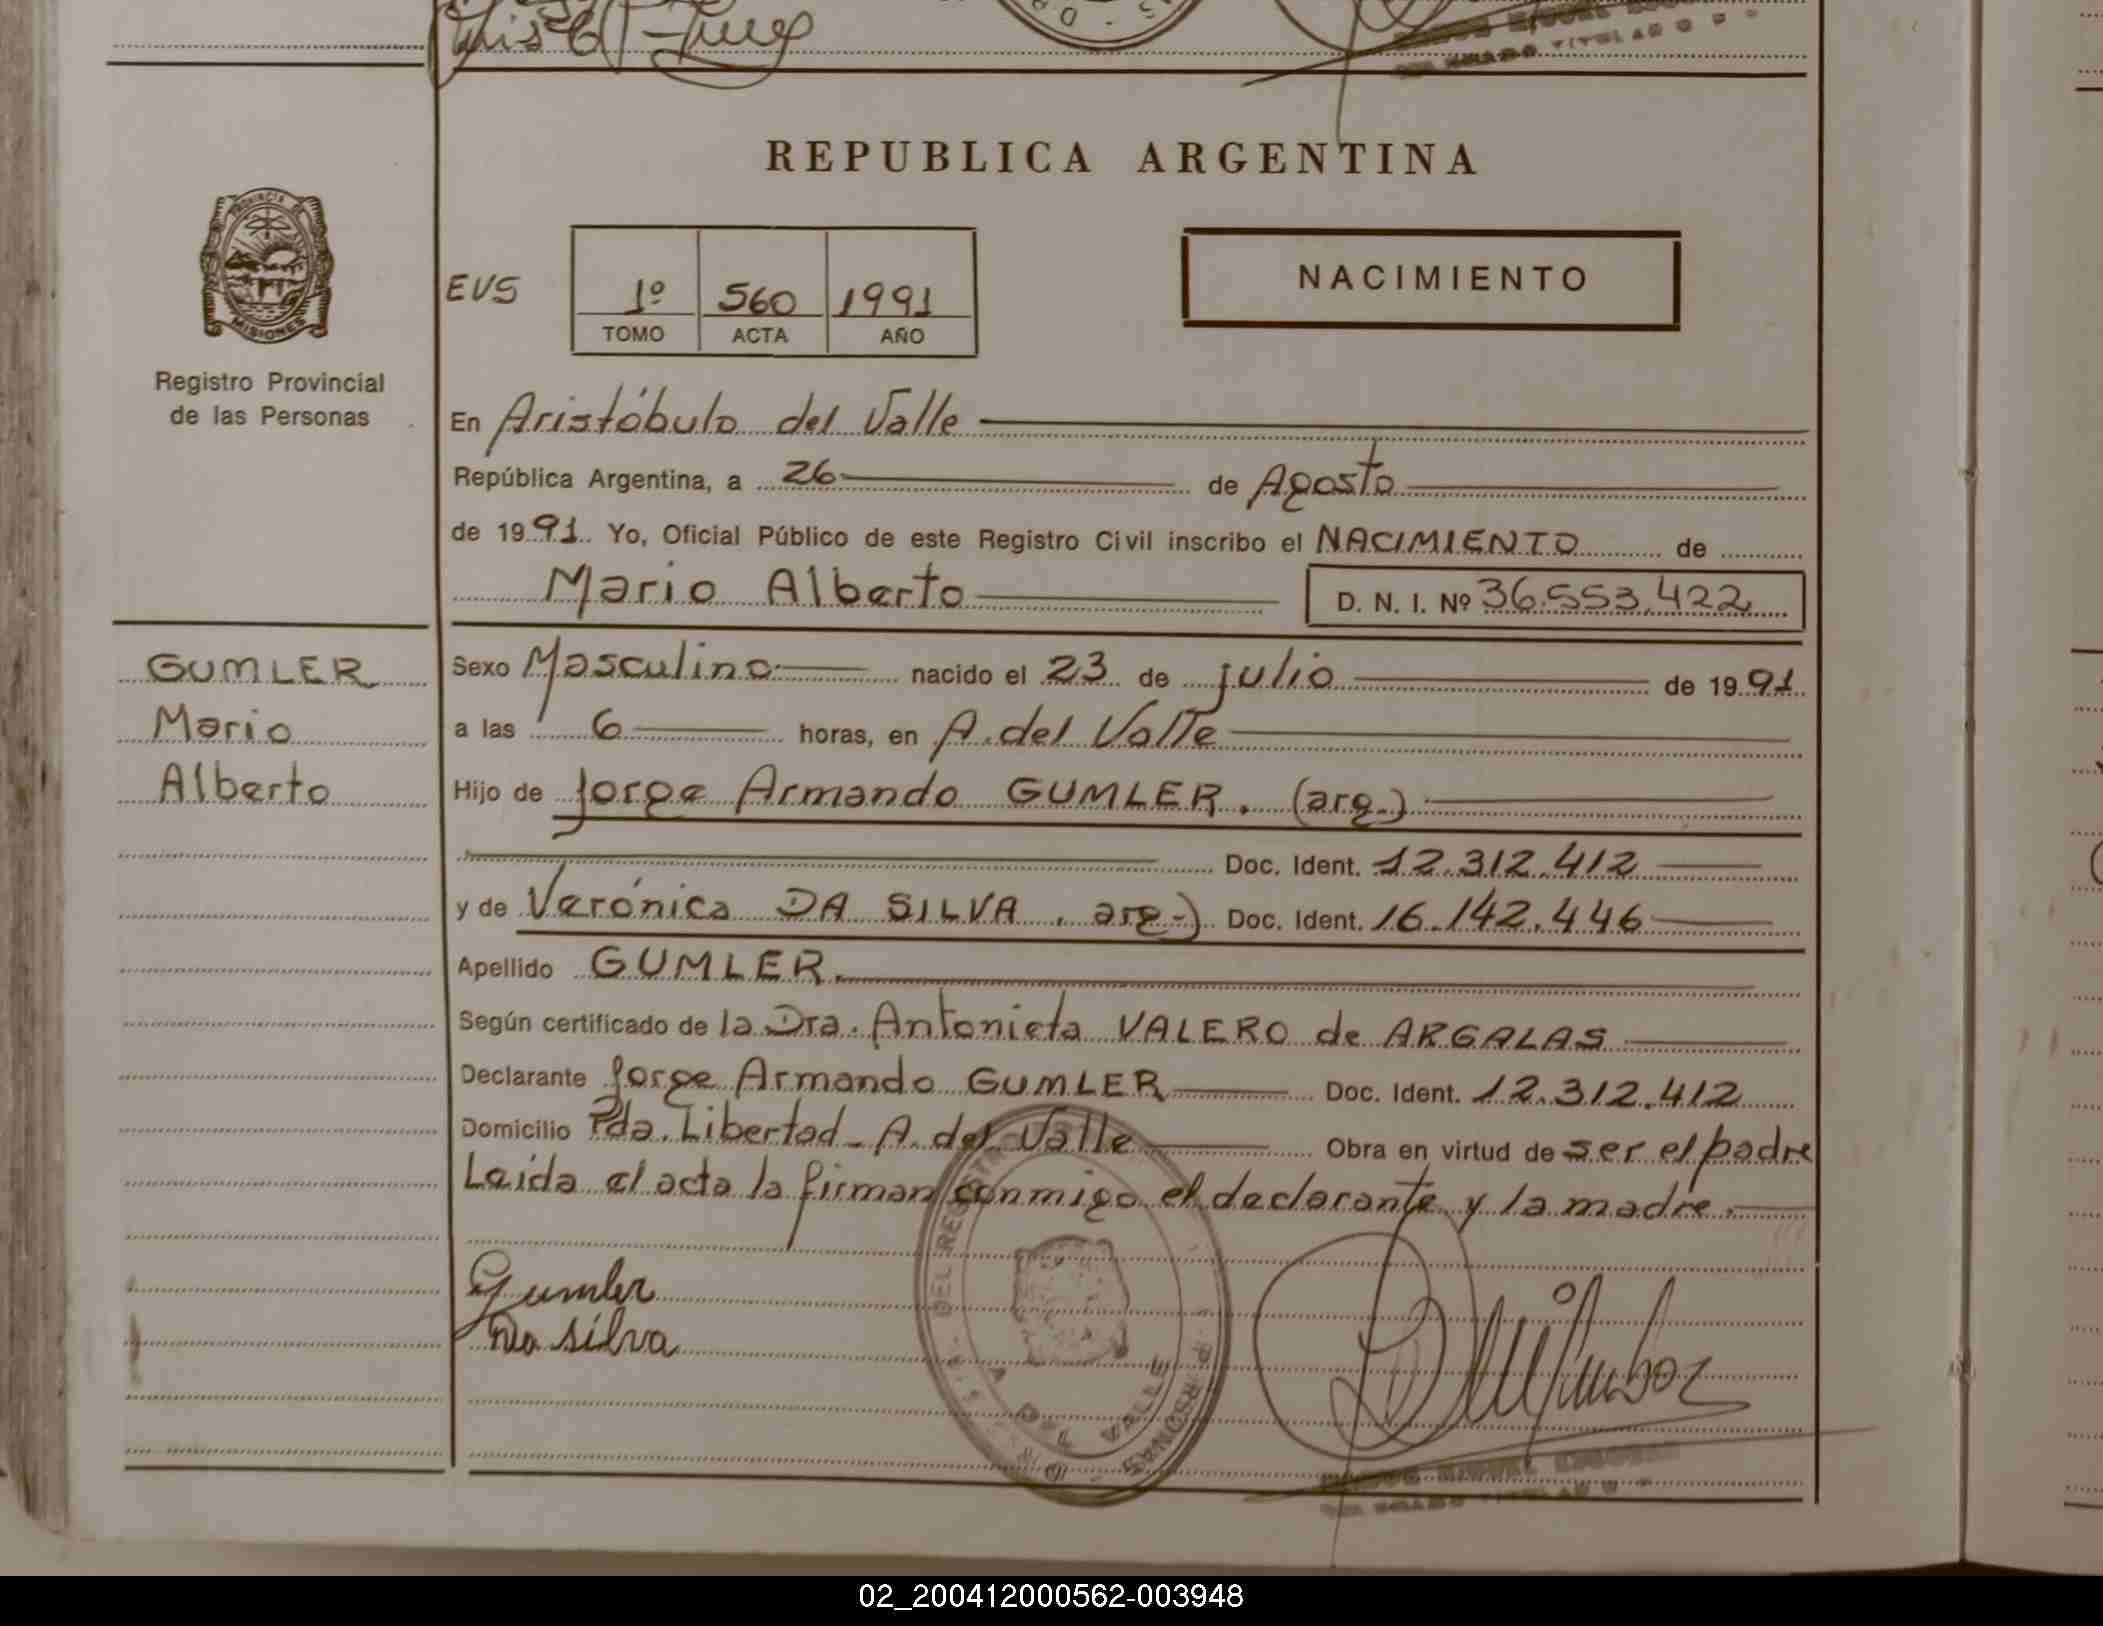 REPUBLICA ARGENTINA
PROVINCIA DE
MISIONES
Registro Provincial
de las Personas
EVS
1º 560 1991
TOMO ACTA AÑO
NACIMIENTO
En Aristóbulo del Valle
República Argentina, a 26 de Agosto
de 1991. Yo, Oficial Público de este Registro Civil inscribo el NACIMIENTO de
Mario Alberto D. N. I. Nº 36.553.422
GUMLER
Mario
Alberto
Sexo Masculino nacido el 23 de julio de 1991
a las 6 horas, en A. del Valle
Hijo de Jorge Armando GUMLER. (arg.)
Doc. Ident. 12.312.412
y de Verónica DA SILVA, arg.) Doc. Ident. 16.142.446
Apellido GUMLER.
Según certificado de la Dra. Antonieta VALERO de ARGALAS
Declarante Jorge Armando GUMLER Doc. Ident. 12.312.412
Domicilio Pda. Libertad - A. del Valle Obra en virtud de ser el padre
Leida el acta la firman conmigo el declarante y la madre.
Gumler
Da silva
DEL REGISTRO
PERSONAS
A. DEL VALLE
02_200412000562-003948